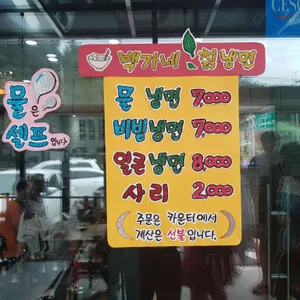 백가네 칡냉면
물 냉면 7,000
비빔냉면 7,000
얼큰냉면 8,000
사리 2,000
주문은 카운터에서
계산은 선불입니다.
물은
셀프
입니다
CESCO